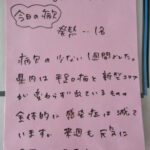 今日の病欠
発熱…1名
病欠の少ない1週間でした。
県内は手足口病と新型コロナ
が変わらず出ているものの
全体的に感染症は減って
います。来週も元気に